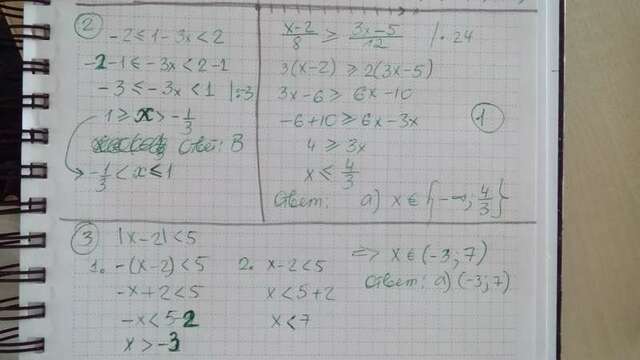 ②
-2 ≤ 1-3x < 2
-2-1 ≤ -3x < 2-1
-3 ≤ -3x < 1 |:-3
1 ≥ x > -1/3
Ответ: В
-1/3 < x ≤ 1
①
(x-2)/8 ≥ (3x-5)/12 |·24
3(x-2) ≥ 2(3x-5)
3x-6 ≥ 6x-10
-6+10 ≥ 6x-3x
4 ≥ 3x
x ≤ 4/3
Ответ: а) x ∈ {-∞; 4/3}
③ |x-2| < 5
1. -(x-2) < 5
-x+2 < 5
-x < 5-2
x > -3
2. x-2 < 5
x < 5+2
x < 7
=> x ∈ (-3; 7)
Ответ: а) (-3; 7)